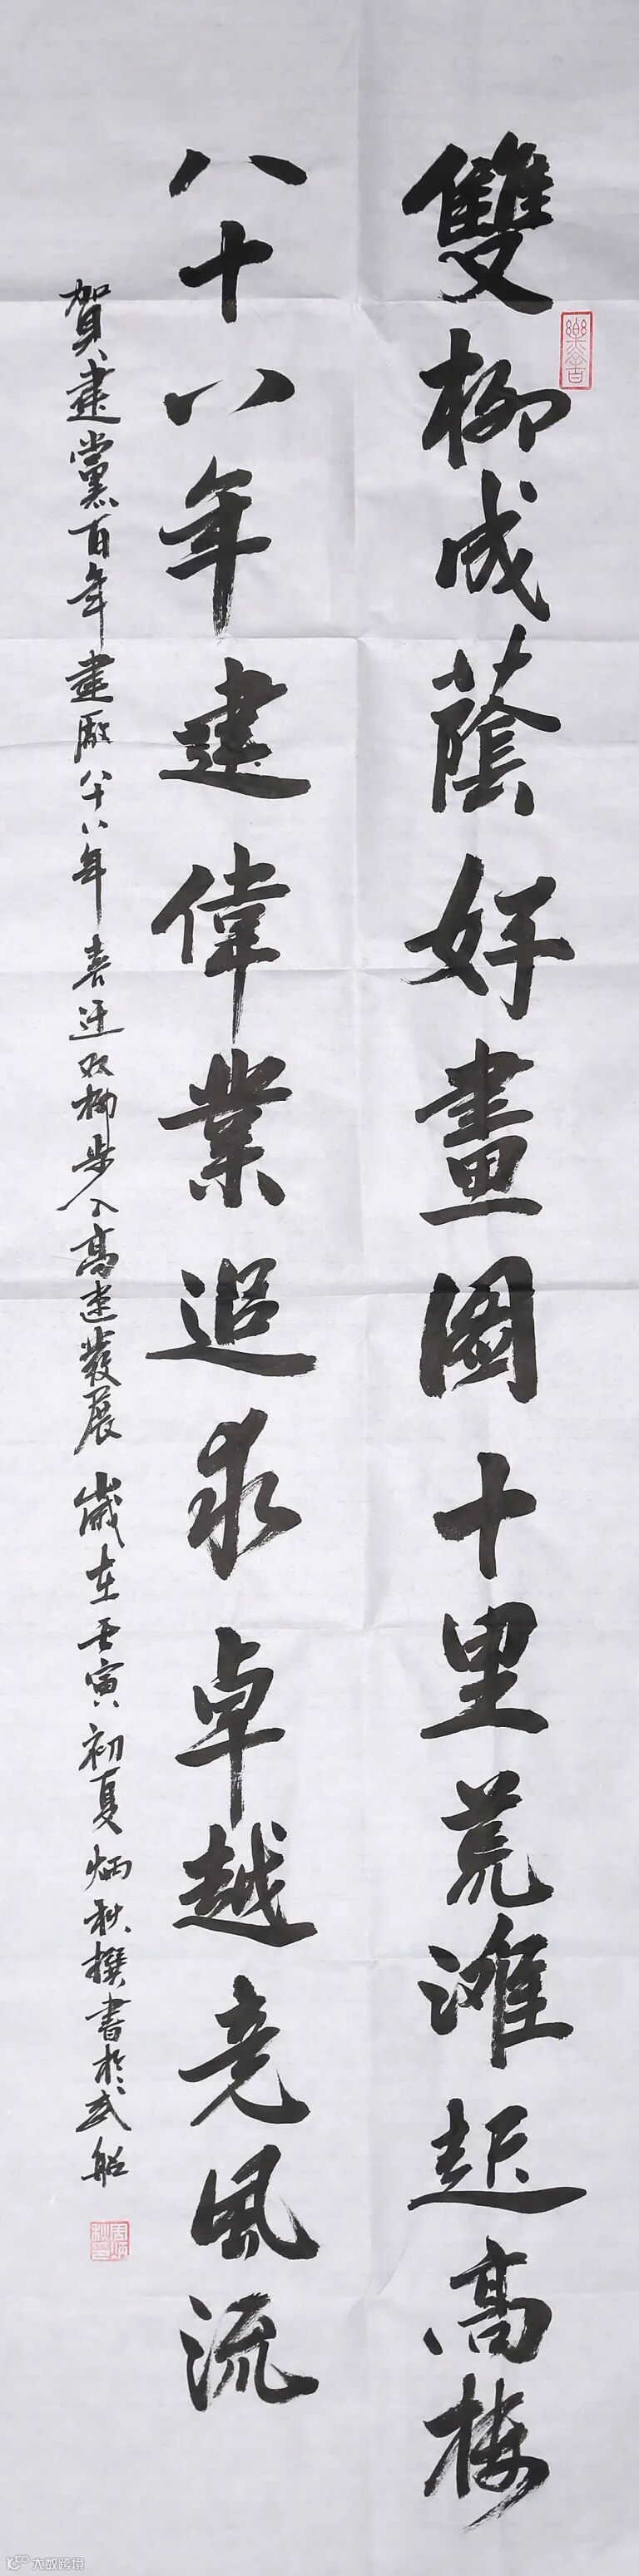 雙柳成蔭好畫圖十里荒滩起高楼
八十八年建偉業追求卓越竞風流
賀建黨百年建廠八十八年喜迁双柳步入高速發展歲在壬寅初夏炳秋撰書於武船
大蚁跨境